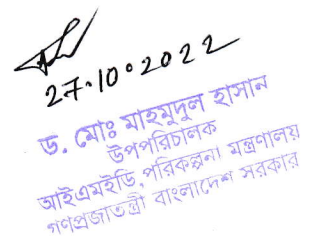 27.10.2022
ড. মোঃ মাহমুদুল হাসান
উপপরিচালক
আইএমইডি, পরিকল্পনা মন্ত্রণালয়
গণপ্রজাতন্ত্রী বাংলাদেশ সরকার